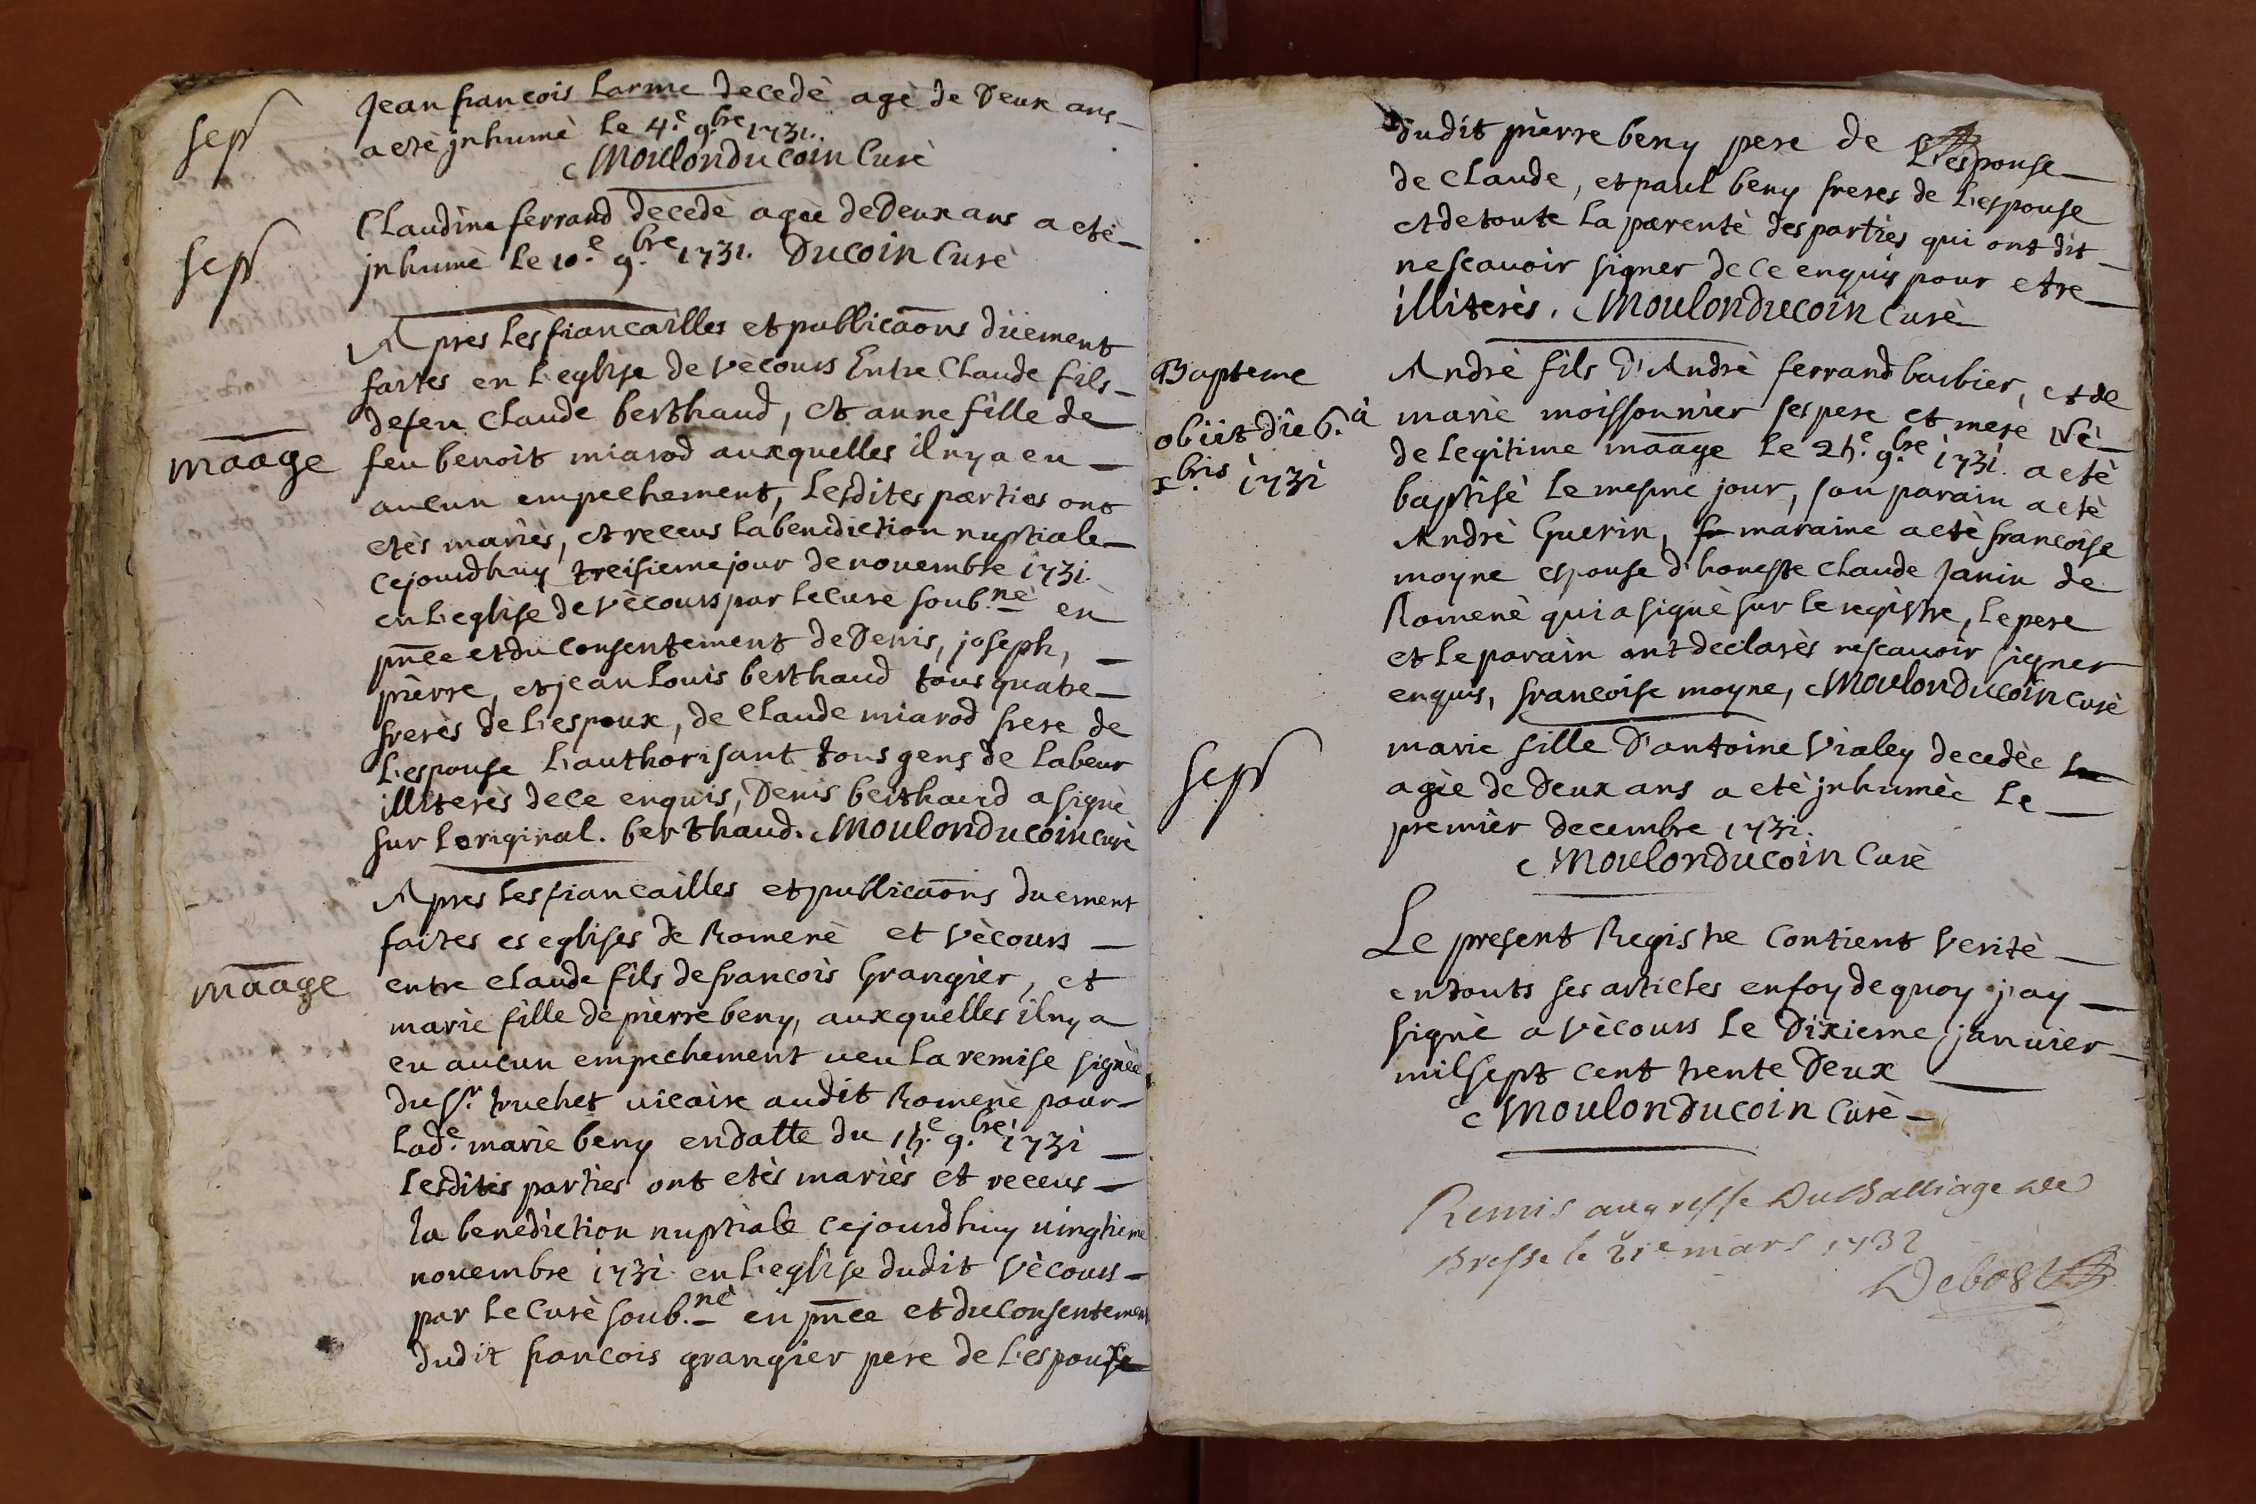 sepr
Jean françois Larme decedè agè de Deux ans
a etè jnhumè Le 4.e 9.bre 1731.
Moulonducoin Curè
sepr
Claudine ferrand decedè agèe de Deux ans a etè
jnhumè Le 10.e 9.bre 1731. Ducoin Curè
Apres Les fiancailles et publicaons düement
faites en L'eglise de vècours Entre Claude fils
de feu Claude berthaud, et anne fille de
maage
feu benoit miarod auxquelles il ny a eu
aucun empechement, Lesdites parties ont
etès mariès, et receus La benidiction nuptiale
cejourdhuy treisieme jour de novembre 1731.
en L'eglise de vècours par Le cure soub.nè en
pnce et du Consentement de Denis, joseph,
pierre, et jean Louis berthaud tous quatre
frerès de L'espoux, de Claude miarod frere de
L'espouse L'authorisant tous gens de Labeur
illiterès de ce enquis, Denis berthaud a signè
sur L'original. berthaud. Moulonducoin curè
Apres Les fiancailles et publicaons duement
faites es eglises de Romenè et vècours
entre Claude fils de francois Grangier, et
maage
marie fille de pierre beny, auxquelles il ny a
eu aucun empechement veu La remise signèe
du Sr. truchet vicaire audit Romenè pour
Lad.e marie beny en datte du 15.e 9.bre 1731
Lesdites parties ont etès mariès et receus
la benediction nuptiale cejourdhuy vingtieme
novembre 1731. en L'eglise dudit vècours
par Le Curè soub.nè en pnce et du Consentement
dudit francois grangier pere de L'espoux
dudit pierre beny pere de L'espouse
de Claude, et paul beny freres de L'espouse
et de toute La parentè des parties qui ont dit
ne scavoir signer de ce enquis pour etre
illiterès. Moulonducoin Curè
Bapteme
obiit die 6.a
xbris 1731
Andrè fils d'Andrè ferrand barbier, et de
marie moissonnier ses pere et mere Nè
de Legitime maage Le 25.e 9.bre 1731. a etè
baptisè Le mesme jour, son parain a etè
Andrè Guerin, sa maraine a etè francoise
moyne espouse d'honeste Claude Janin de
Romenè qui a signè sur le registre, Le pere
et Le parain ont declarès ne scavoir signer
enquis, francoise moyne, Moulonducoin curè
sepr
marie fille d'antoine Vialey decedèe
agèe de Deux ans a etè jnhumèe Le
premier decembre 1731.
Moulonducoin Curè
Le present Registre Contient Veritè
en touts ses articles en foy de quoy j'ay
signè a vècours Le Dixieme janvier
mil sept cent trente Deux
Moulonducoin Curè
Remis au greffe Du Balliage De
Bresse le 21e mars 1732
Debost